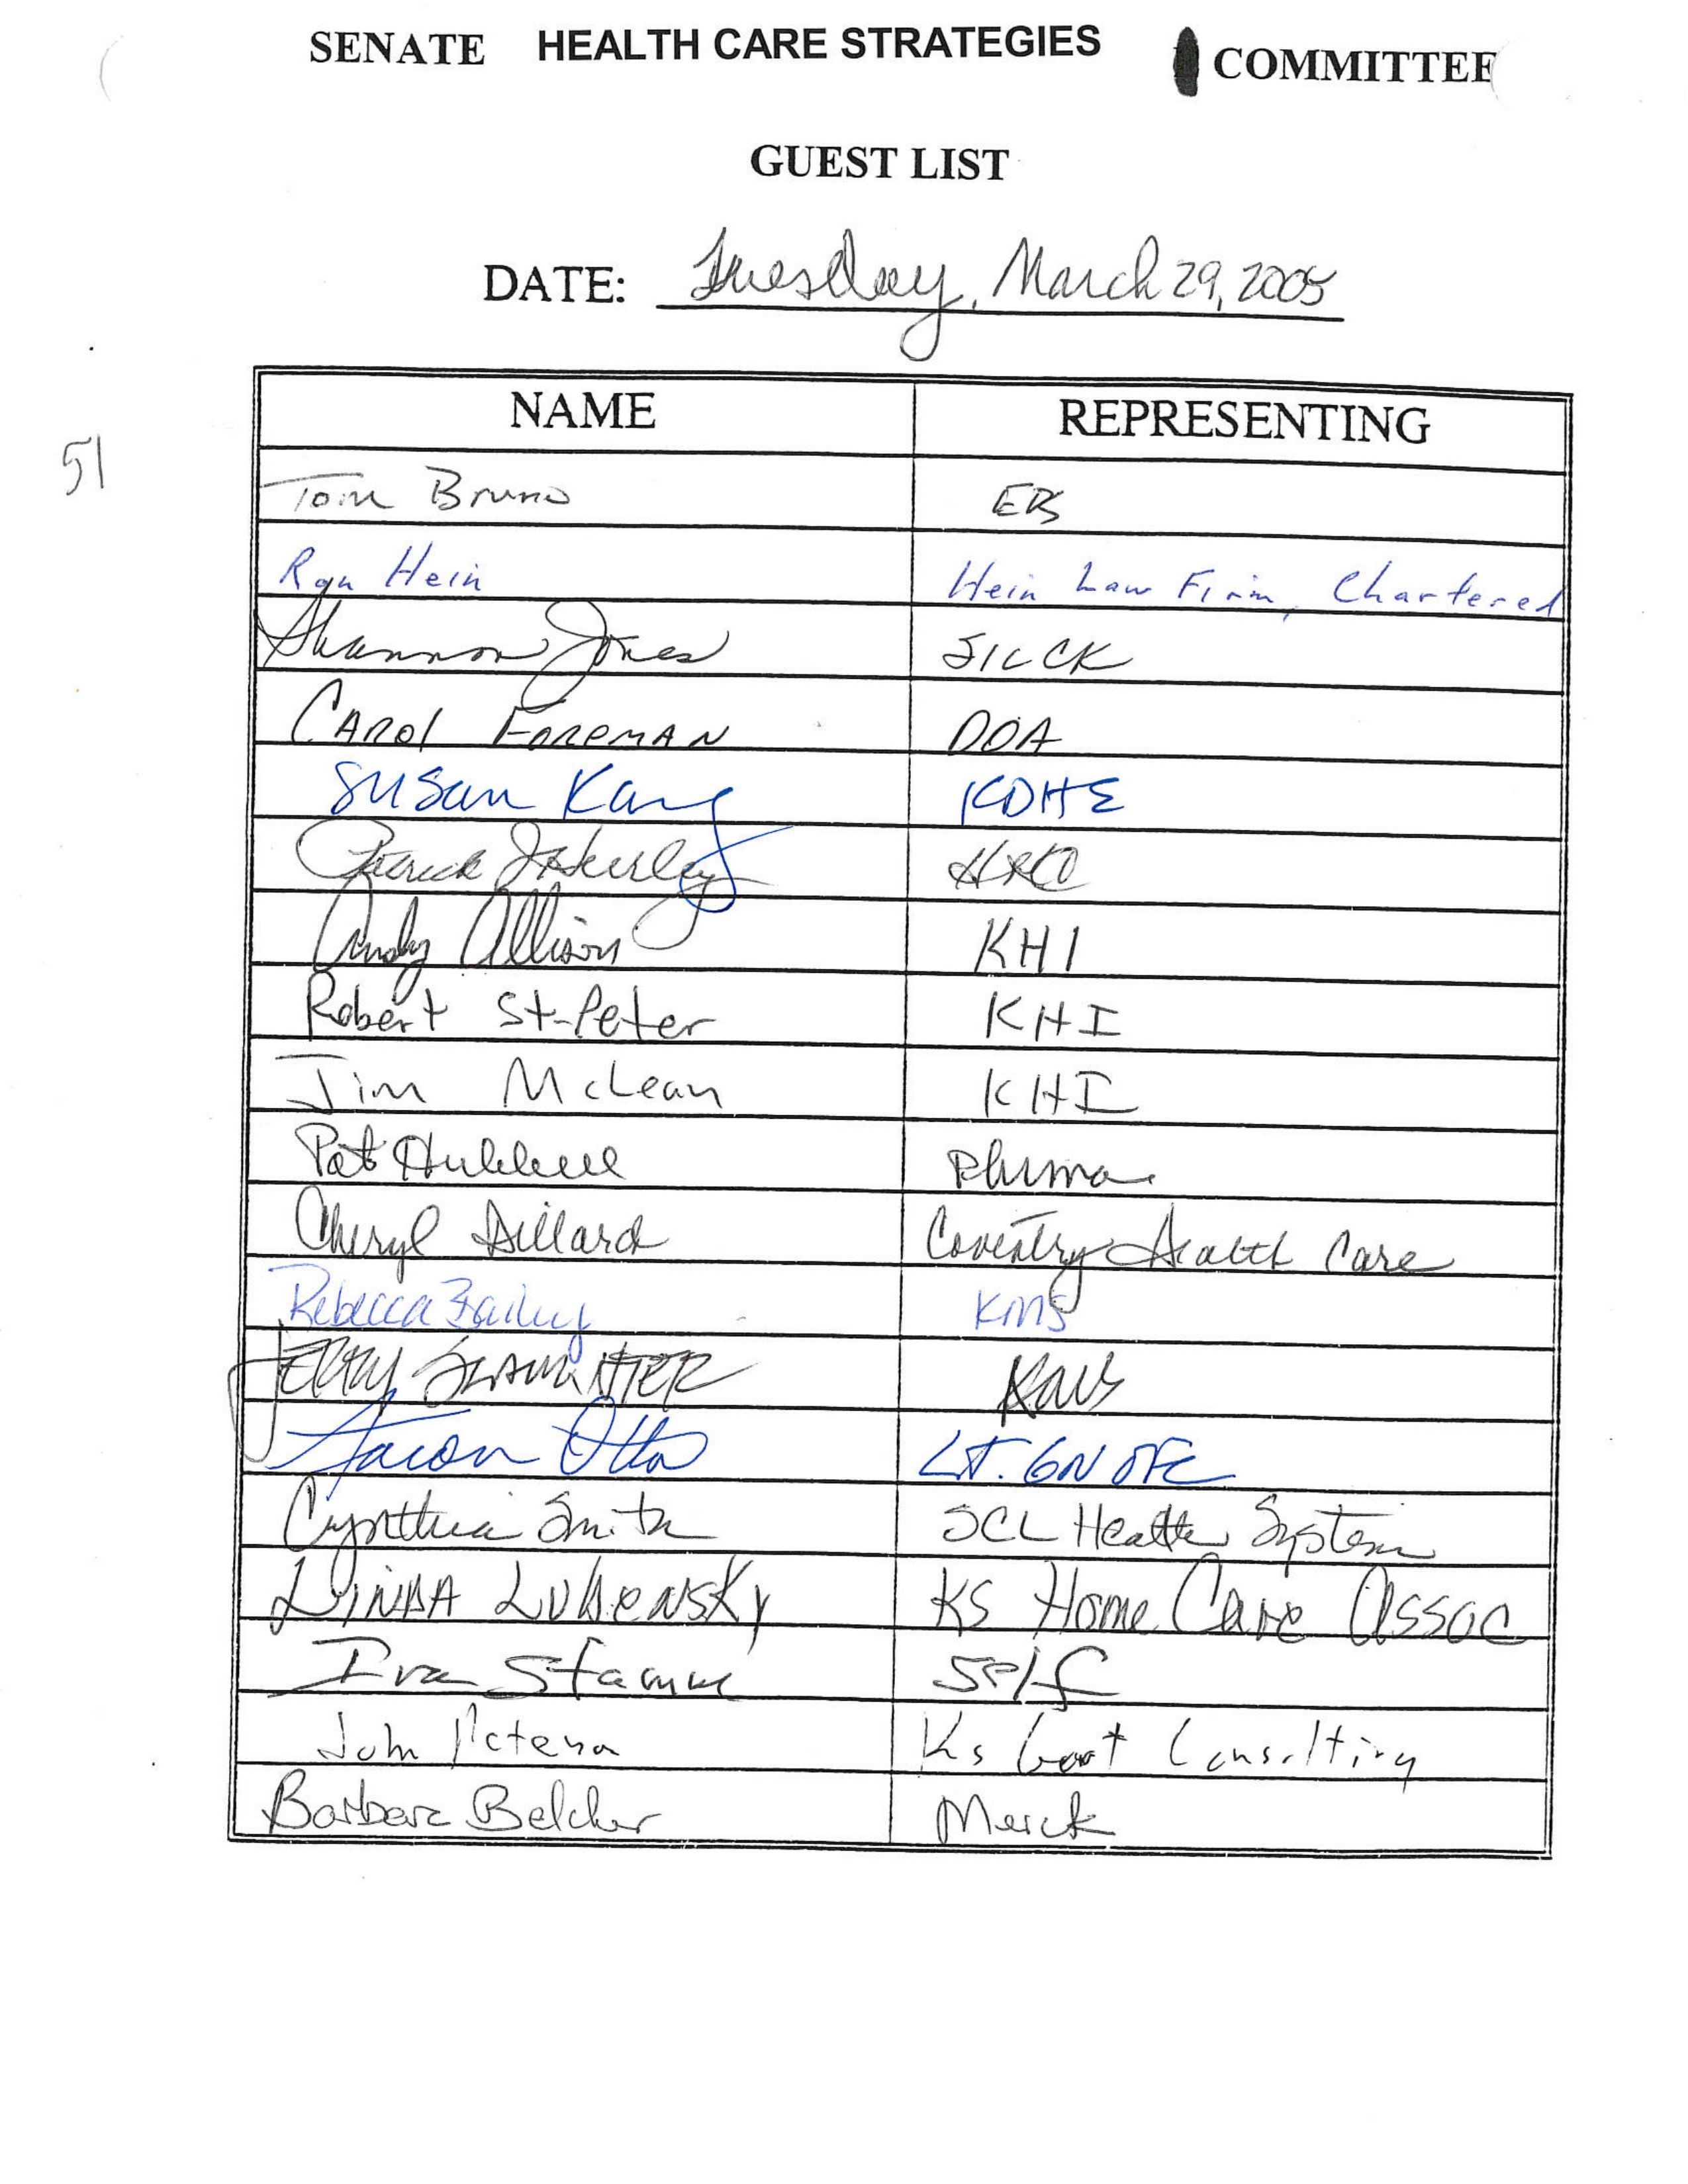 SENATE HEALTH CARE STRATEGIES COMMITTEE
GUEST LIST
DATE: Tuesday, March 29, 2005
NAME REPRESENTING
51
Tom Bruno EBS
Ron Hein Hein Law Firm, Chartered
Shannon Jones SILCK
CAROL FOREMAN DOA
Susan Kang KDHE
Patrick
Andy Allison KHI
Robert St-Peter KHI
Jim McLean KHI
Pat Hubbell Phrma
Cheryl Dillard Coventry Health Care
Rebecca Bailey KMS
JERRY SLAUGHTER KMS
Aaron Otto LT. GOV OFC
Cynthia Smith SCL Health System
LINDA LUBENSKY KS Home Care Assoc
Self
John Ks Govt Consulting
Barbara Belcher Merck